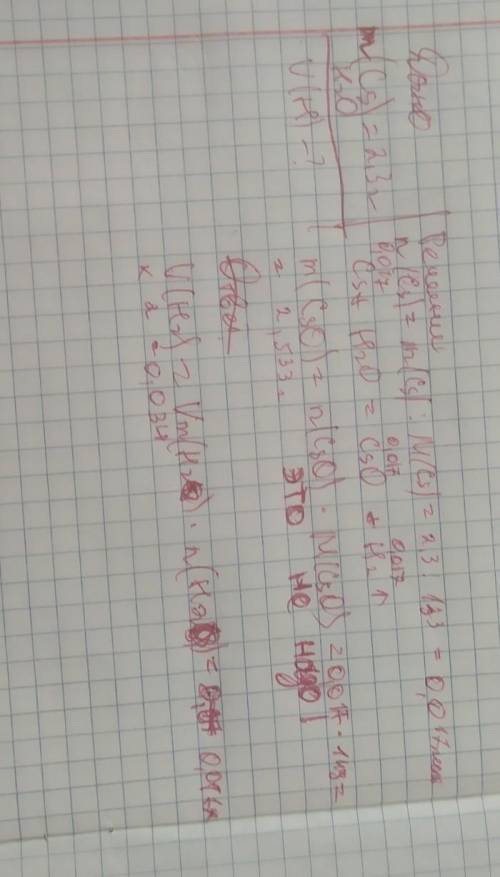 Дано
m(Cs) = 2,3г
H₂O
V(H₂) - ?
Решение
n(Cs) = m(Cs) : M(Cs) = 2,3 : 133 = 0,017моль
0,017 0,017 0,017
Cs + H₂O = CsO + H₂↑
m(CsO) = n(CsO) · M(CsO) = 0,017 · 149 =
= 2,533г
ЭТО НЕ НАДО!
Ответ
V(H₂) = Vm(H₂) · n(H₂) = 0,017 ×
× 2 = 0,034